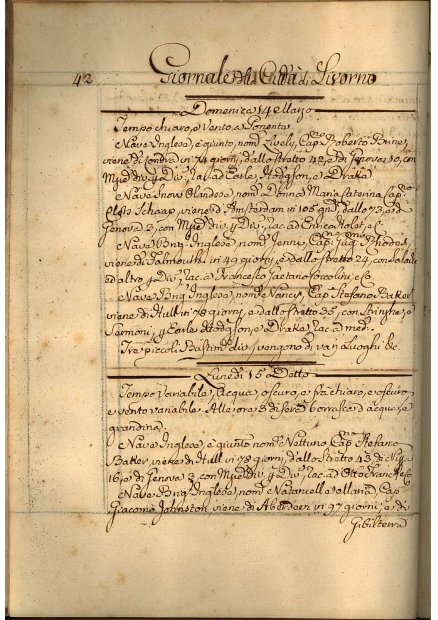 42 Giornale della Città di Livorno
Domenica 14 Marzo
Tempo chiaro, e Vento a Ponente
Nave Inglese, è giunto, nom.ᵗᵃ Lively, Cap.ⁿᵒ Roberto
viene di Londra in 74 giorni, dallo stretto 42, e di Genova 10, con
Mzie div. p Div. rac. a Earle, Hodgson, e Drake
Nave Snow Olandese, nom.ᵗᵃ Donna Maria Caterina, Cap.ⁿᵒ
Schaap, viene d'Amsterdam in 105 gni, dallo 73, e di
Genova 3, con Mzie div. p Div. rac. ad Enrico
Nave Bng. Inglese, nom.ᵗᵃ Jenni, Cap. Rhodes,
viene di Falmouth in 49 giorni, e dallo stretto 24, con
ed altro p Div. rac. a Francesco Gaetano e C.
Nave Bng. Inglese, nom.ᵗᵃ Nancy, Cap. Stefano Baker
viene di Hull in 78 giorni, e dallo stretto 35, con Aringhe, e
Sarmoni, p Earle Hodgson, e Drake, rac. a med.ⁱ
Tre piccoli Bastim.ᵗⁱ div. vengono di varj Luoghi &c
Lunedì 15 Detto
Tempo Variabile, acqua, oscuro, e frà chiaro, e oscuro
e vento variabile. Alle ore 5 di sera borrasca d'acqua, e
grandina.
Nave Inglese, è giunto nom.ᵗᵃ Nettuno Cap.ⁿᵒ Stefano
viene di Hull in 78 giorni, dallo stretto 43 di
16, e di Genova 3, con Mzie Div. p Div. rac. ad Otto
Nave Bng. Inglese, nom.ᵗᵃ Nataniell e Cap.
Giacomo Johnston, viene di Aberdeen in 97 giorni, e di
Gibilterra